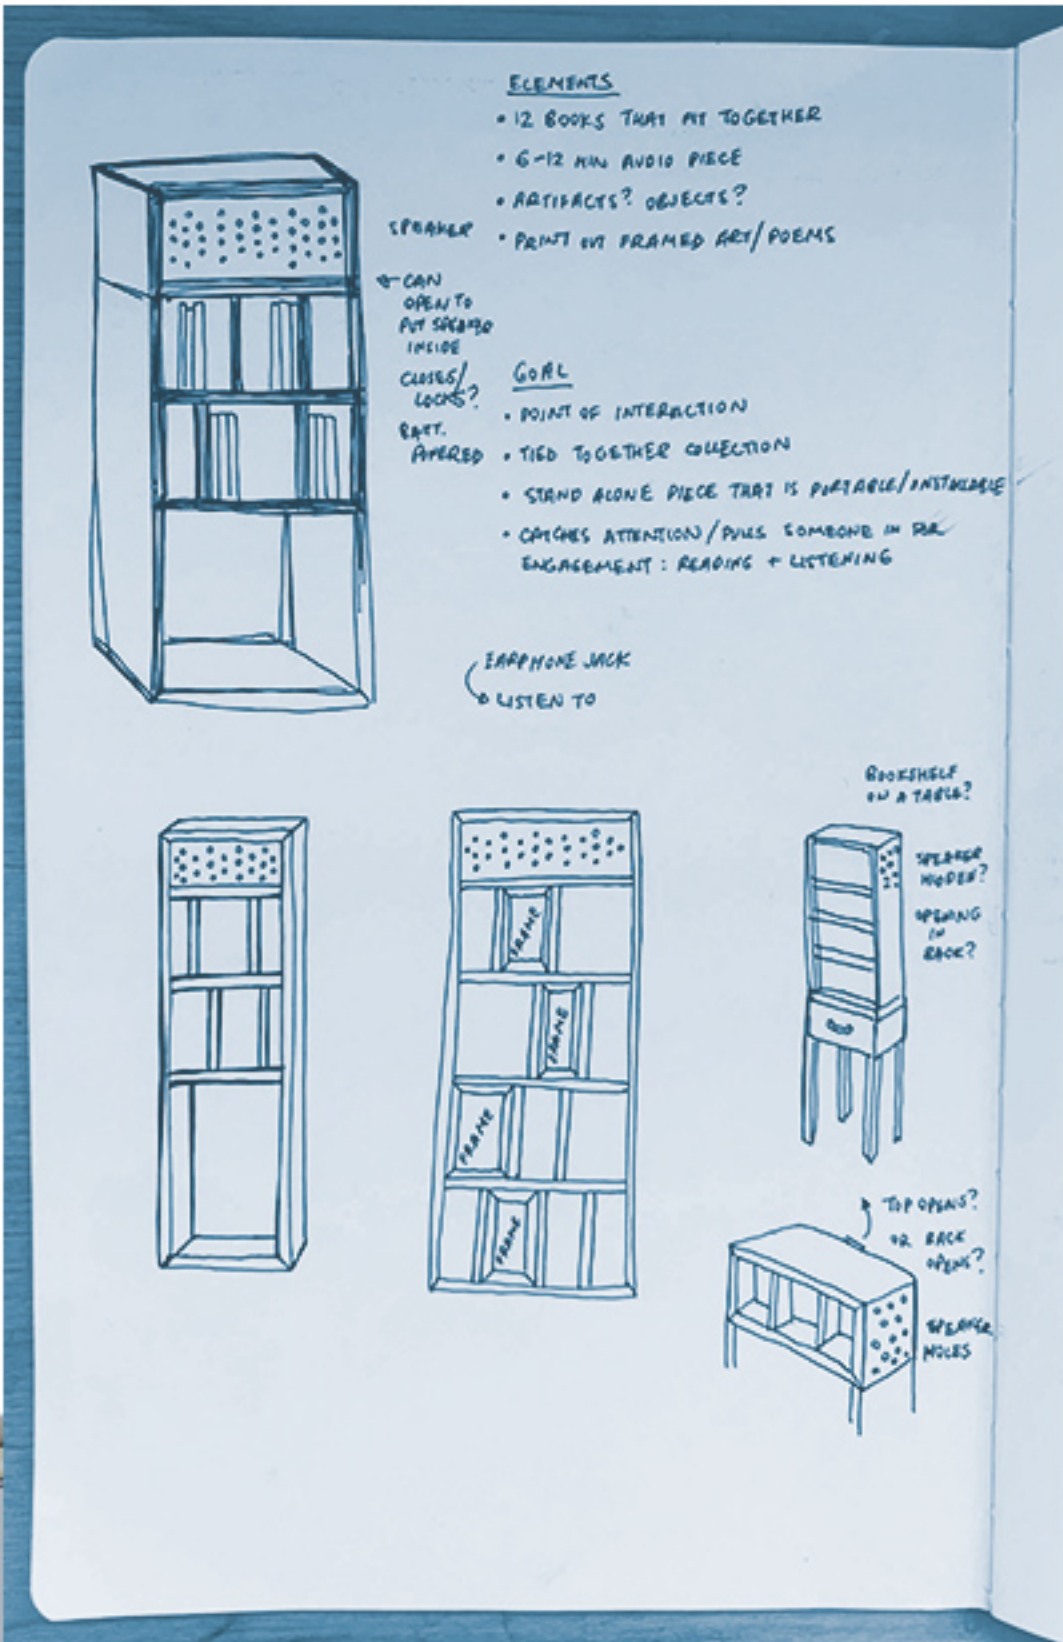 ELEMENTS
• 12 BOOKS THAT FIT TOGETHER
• 6-12 MIN AUDIO PIECE
• ARTIFACTS? OBJECTS?
• PRINT OUT FRAMED ART/POEMS
SPEAKER
CAN
OPEN TO
PUT SPEAKER
INSIDE
CLOSES/
LOCKS?
BATT.
POWERED
GOAL
• POINT OF INTERACTION
• TIED TOGETHER COLLECTION
• STAND ALONE PIECE THAT IS PORTABLE/INSTALLABLE
• CATCHES ATTENTION/PULLS SOMEONE IN FOR
ENGAGEMENT: READING + LISTENING
EARPHONE JACK
LISTEN TO
FRAME
FRAME
FRAME
FRAME
BOOKSHELF
ON A TABLE?
SPEAKER
HIDDEN?
OPENING
IN
BACK?
TOP OPENS?
OR BACK
OPENS?
SPEAKER
HOLES